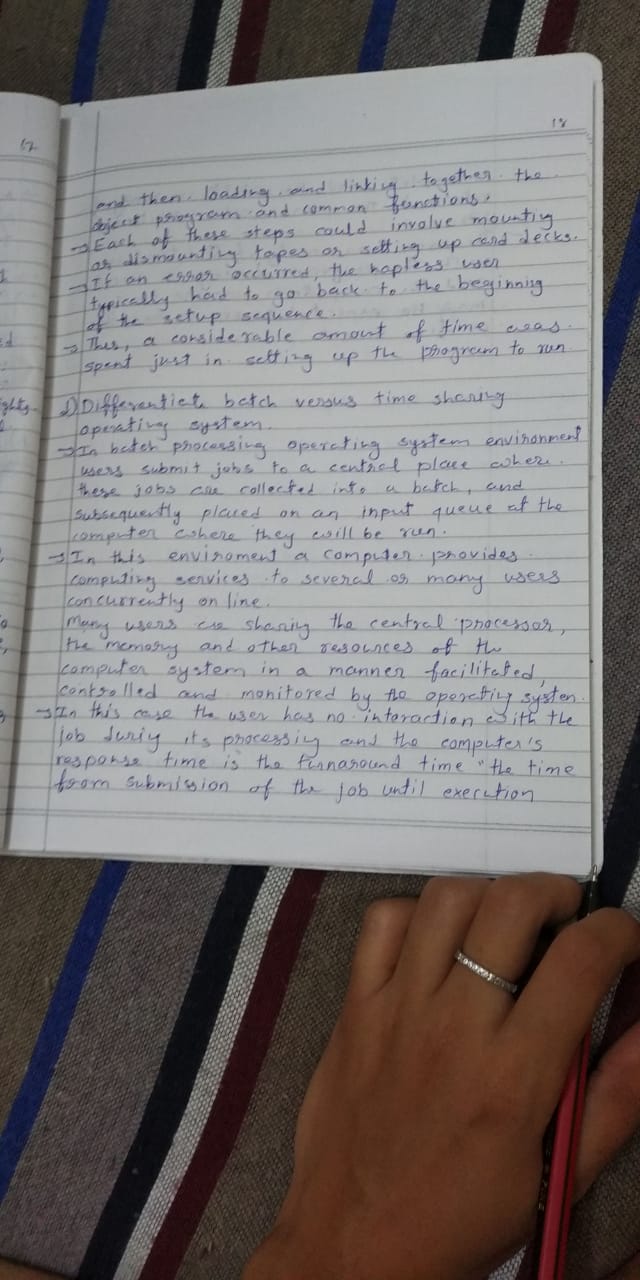 17
18
and then loading and linking together the
object program and common functions.
→ Each of these steps could involve mounting
or dismounting tapes or setting up card decks.
→ If an error occurred, the hapless user
typically had to go back to the beginning
of the setup sequence.
→ Thus, a considerable amount of time was
spent just in setting up the program to run
2) Differentiate batch versus time sharing
operating system.
→ In batch processing operating system environment
users submit jobs to a central place where
these jobs are collected into a batch, and
subsequently placed on an input queue at the
computer where they will be run.
→ In this enviroment a computer provides
computing services to several or many users
concurrently on line.
Many users are sharing the central processor,
the memory and other resources of the
computer system in a manner facilitated,
controlled and monitored by the operating system.
→ In this case the user has no interaction with the
job during its processing and the computer's
response time is the turnaround time "the time
from submission of the job until execution